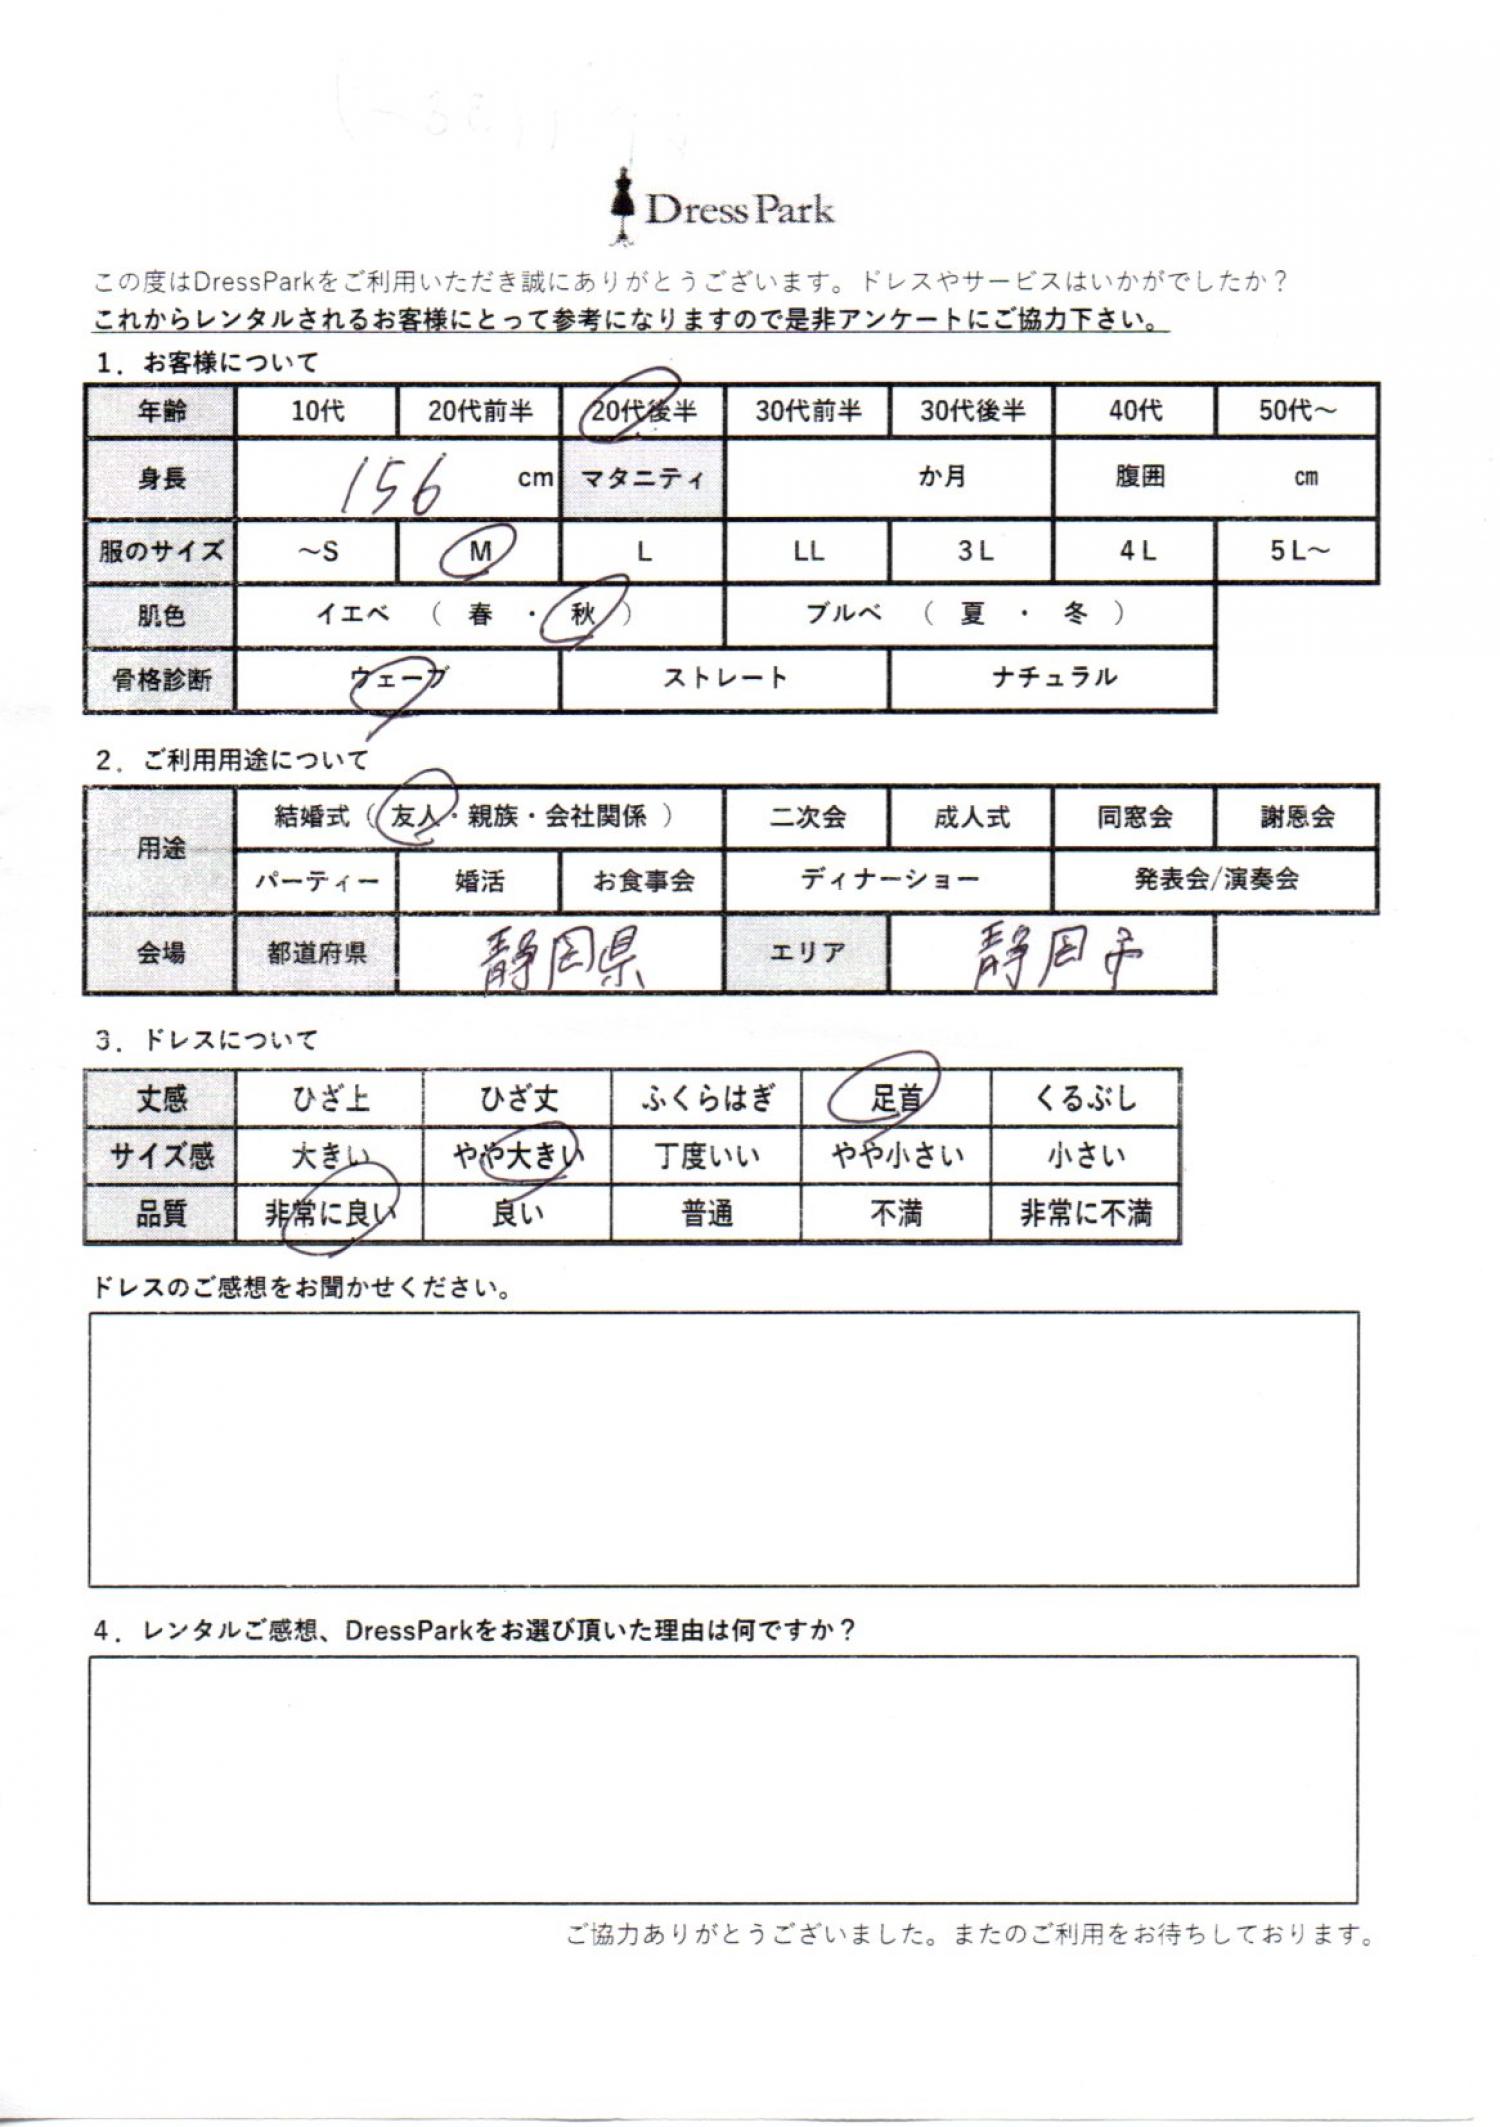 Dress Park
この度はDressParkをご利用いただき誠にありがとうございます。ドレスやサービスはいかがでしたか？
これからレンタルされるお客様にとって参考になりますので是非アンケートにご協力下さい。
1．お客様について
年齢 10代 20代前半 20代後半 30代前半 30代後半 40代 50代～
身長 156 cm マタニティ か月 腹囲 ㎝
服のサイズ ～S M L LL 3L 4L 5L～
肌色 イエベ （ 春 ・ 秋 ） ブルベ （ 夏 ・ 冬 ）
骨格診断 ウェーブ ストレート ナチュラル
2．ご利用用途について
用途 結婚式（ 友人・親族・会社関係 ） 二次会 成人式 同窓会 謝恩会
パーティー 婚活 お食事会 ディナーショー 発表会/演奏会
会場 都道府県 静岡県 エリア 静岡市
3．ドレスについて
丈感 ひざ上 ひざ丈 ふくらはぎ 足首 くるぶし
サイズ感 大きい やや大きい 丁度いい やや小さい 小さい
品質 非常に良い 良い 普通 不満 非常に不満
ドレスのご感想をお聞かせください。
4．レンタルご感想、DressParkをお選び頂いた理由は何ですか？
ご協力ありがとうございました。またのご利用をお待ちしております。